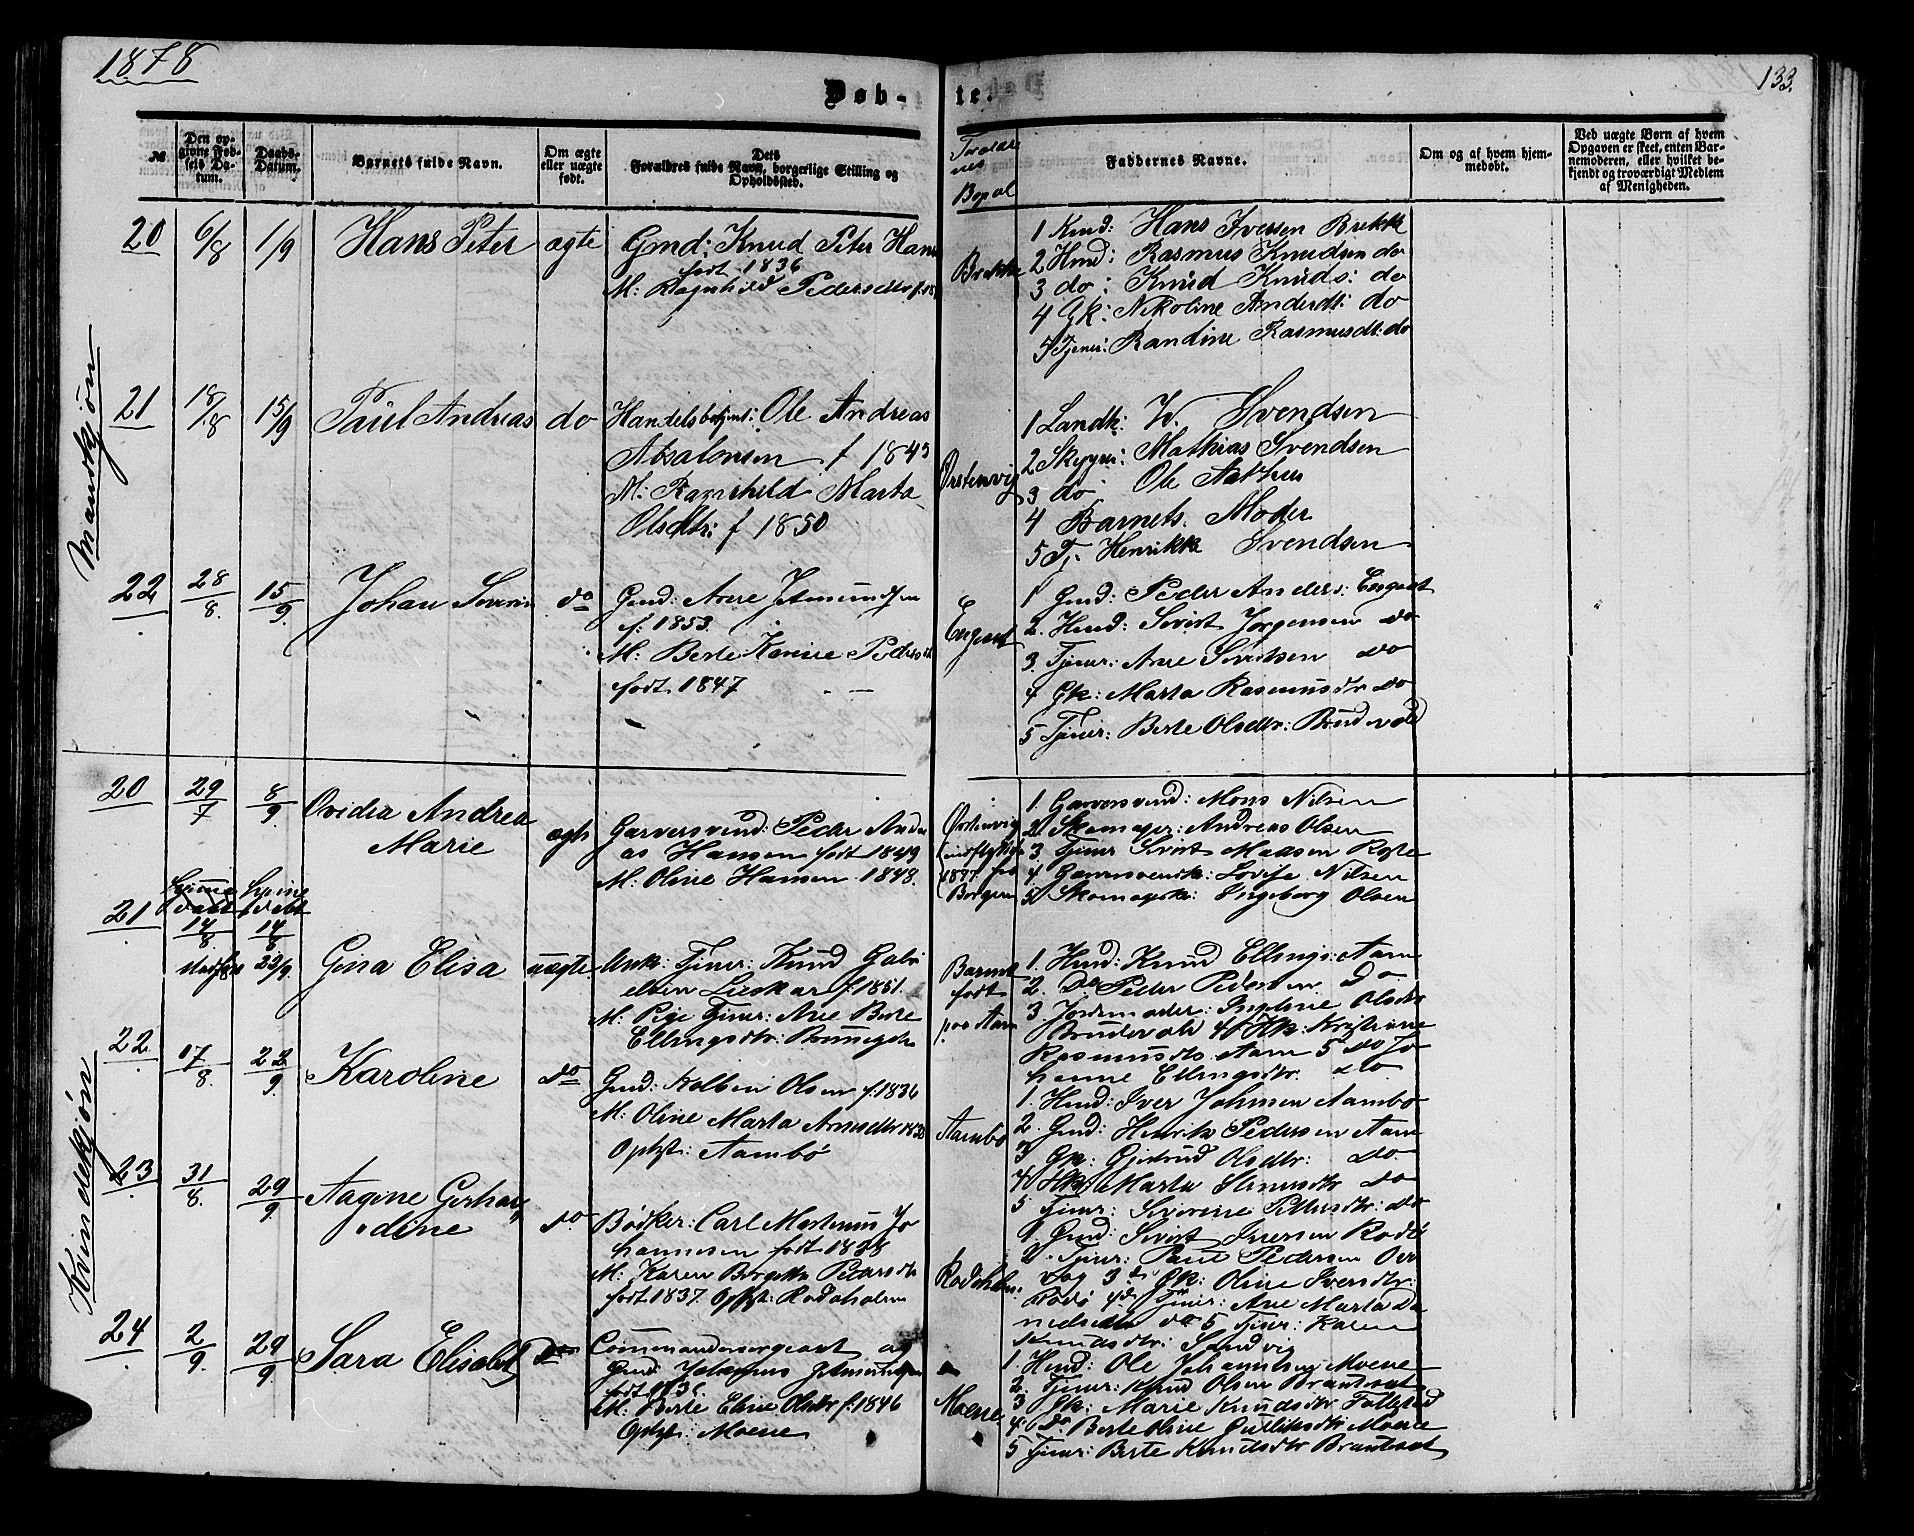 1878
133.
Døb-
te.
№
Den op-
givne Fød-
sels Da-
tum.
Daabs-
Datum.
Barnets fulde Navn.
Om ægte
eller uægte
født.
Dets
Forældres fulde Navn, borgerlige Stilling og
Opholdssted.
Forældre
nes
Bopæl
Faddernes Navne.
Om og af hvem hjem-
medøbt.
Ved uægte Børn af hvem
Opgaven er skeet, enten Bar-
nemoderen, eller hvilket be-
kjendt og troværdigt Medlem
af Menigheden.
Mandkjøn
20 6/8 1/9 Hans Peter ægte
Gmd: Knud Peter Hans
født 1836
M: Ragnhild Pedersdtr
Brekke
1 Kmd: Hans Iversen Brekke
2 Hmd: Rasmus Knudsen do
3 do: Knud Knuds: do
4 Gk: Nikoline Andersdt: do
5 Tjener: Randine Rasmusdt: do
21 18/8 15/9 Paul Andreas do
Handelsbetjent: Ole Andreas
Absalonsen f 1845
M: Ragnhild Marta
Olsdtr: f 1850
Ørstenvig
1 Landh: W. Svendsen
2 Mathias Svendsen
3 do Ole Aakhus
4 Barnets Moder
5 Tj: Henrikke Svendsen
22 28/8 15/9 Johan Severin do
Gmd: Arne Jetmundsen
f: 1853.
M: Berte Karine Peders
født 1847
Engeset
1 Gmd: Peder Anders: Engeset
2. Hmd: Sivert Jørgensen do
3. Tjener: Arne Sivertsen do
4 Gk: Marta Rasmusdtr do
5 Tjener: Berte Olsdtr: Brudevold
Kvindekjøn
20 29/7 8/9 Ovidia Andrea
Marie
ægte
Garversvend: Peder Andre
as Hansen født 1849
M: Oline Hansen 1848.
Ørstenvig
indflyttet
187 fra
Bergen
1. Garversvend: Mons Nilsen
2. Skomager: Andreas Olsen
3. Tjener Sivert Madsen
4. Garversvendk: Lovise Nilsen
5. Skomagerk: Ingeborg Olsen
21 hjemme
døbt
14/8
hjemme
døbt
14/8
22/9. Gina Elisa uægte
Ank: Tjener: Knud Gabri
elsen f. 1851.
M. Pige Tjener: Ane Berte
Ellingsdtr:
Barnet
født
paa Aam
1. Hmd: Knud Ellings: Aam
2. Do Peder Pedersen Do
3. Jordemoder: Olsdtr
Brudevold 4 Hk: Kristiane
Rasmusdtr Aam 5 do Jo
hanne Ellingsdtr. do.
22 17/8. 22/9 Karoline do
Gmd: Kolben Olsen f. 1836
M: Oline Marta
Opht: Aambø
Aambø
1. Hmd: Iver Johnsen Aambø
2. Gmd: Henrik Pedersen Aam
3 Gk: Gjertrud Olsdtr: do
4 Hk: Marta do
5 Tjener: Severine do
23 31/8. 29/9 Aagine Gerhar
dine
do
Bødker: Carl Martinus Jo
hannesen født 1838
M: Karen Bergitte Pedersdtr
født 1837. Opht: Rødsholm
Rødsholm.
1. Gmd: Sivert Iversen
2. Tjener: Paul Pedersen
3 Gk: Oline Iversdtr:
4 Tjener: Ane Marta Da
nielsdtr do 5 Tjener: Karen
Knudsdtr: Sandvig
24 2/9. 29/9 Sara Elisabet do
Commandersergeant og
Gmd: Johannes Jetmundsen
født
M. Berte Eline Olsdtr f. 1846
Opht: Moene
Moene
1. Hmd: Ole Johannesen Moene
2. Tjener: Knud Olsen
3 Gk: Marie Knudsdtr
4 do. Berte Oline Moene
5 Tjener: Berte Knudsdtr